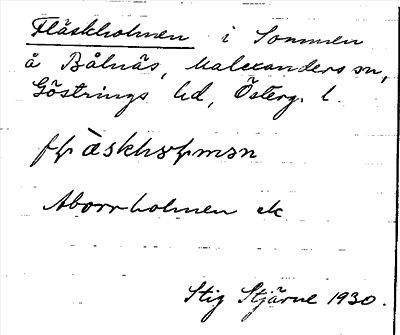 Fläskholmen i Sommen
å Bålnäs, Malexanders sn,
Göstrings hd, Österg. l.
Aborrholmen ek
Stig Stjärne 1930.